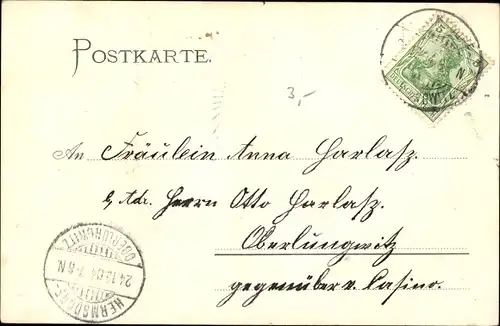 POSTKARTE.
3,-
An Fräulein Anna Harlasz.
p. Adr. Herrn Otto Harlasz.
Oberlungwitz
gegenüber v. Casino.
HERMSDORF-
OBERLUNGWITZ